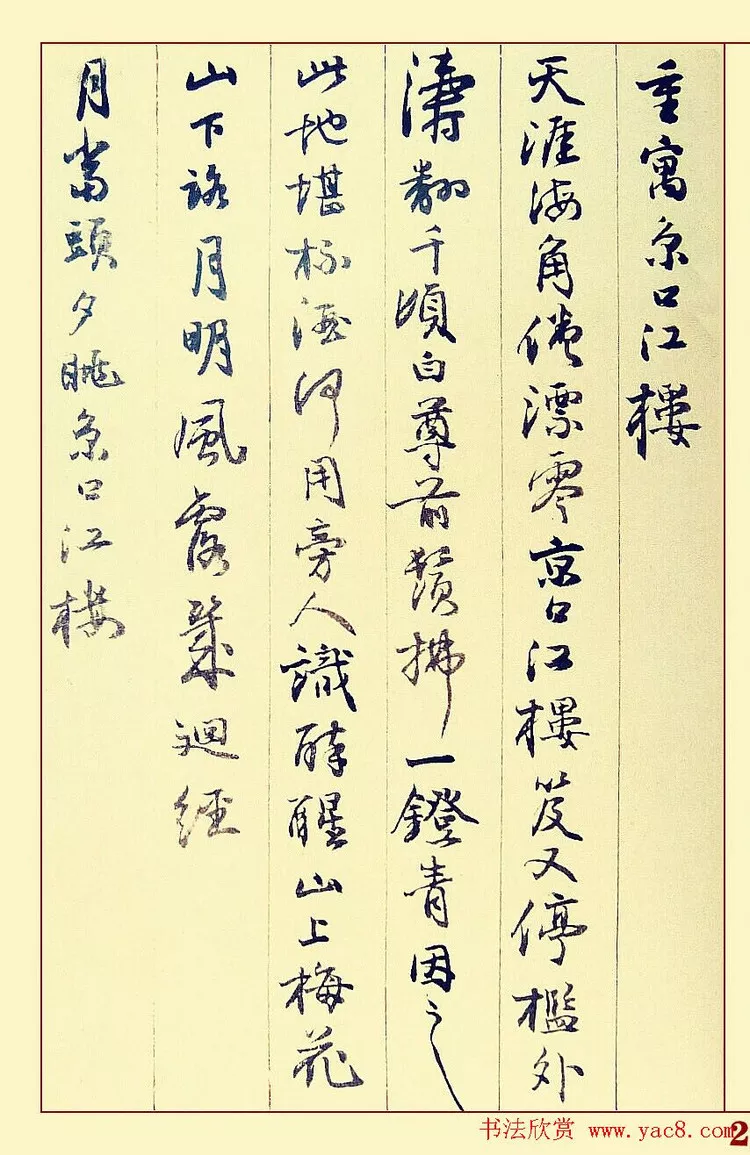 重寓京口江樓
天涯海角倦漂零京口江樓笈又停檻外
濤翻千頃白尊前鬢拂一鐙青因之
此地堪酒何用旁人識醉醒山上梅花
山下路月明風露幾迴經
月當頭夕眺京口江樓
书法欣赏 www.yac8.com
2